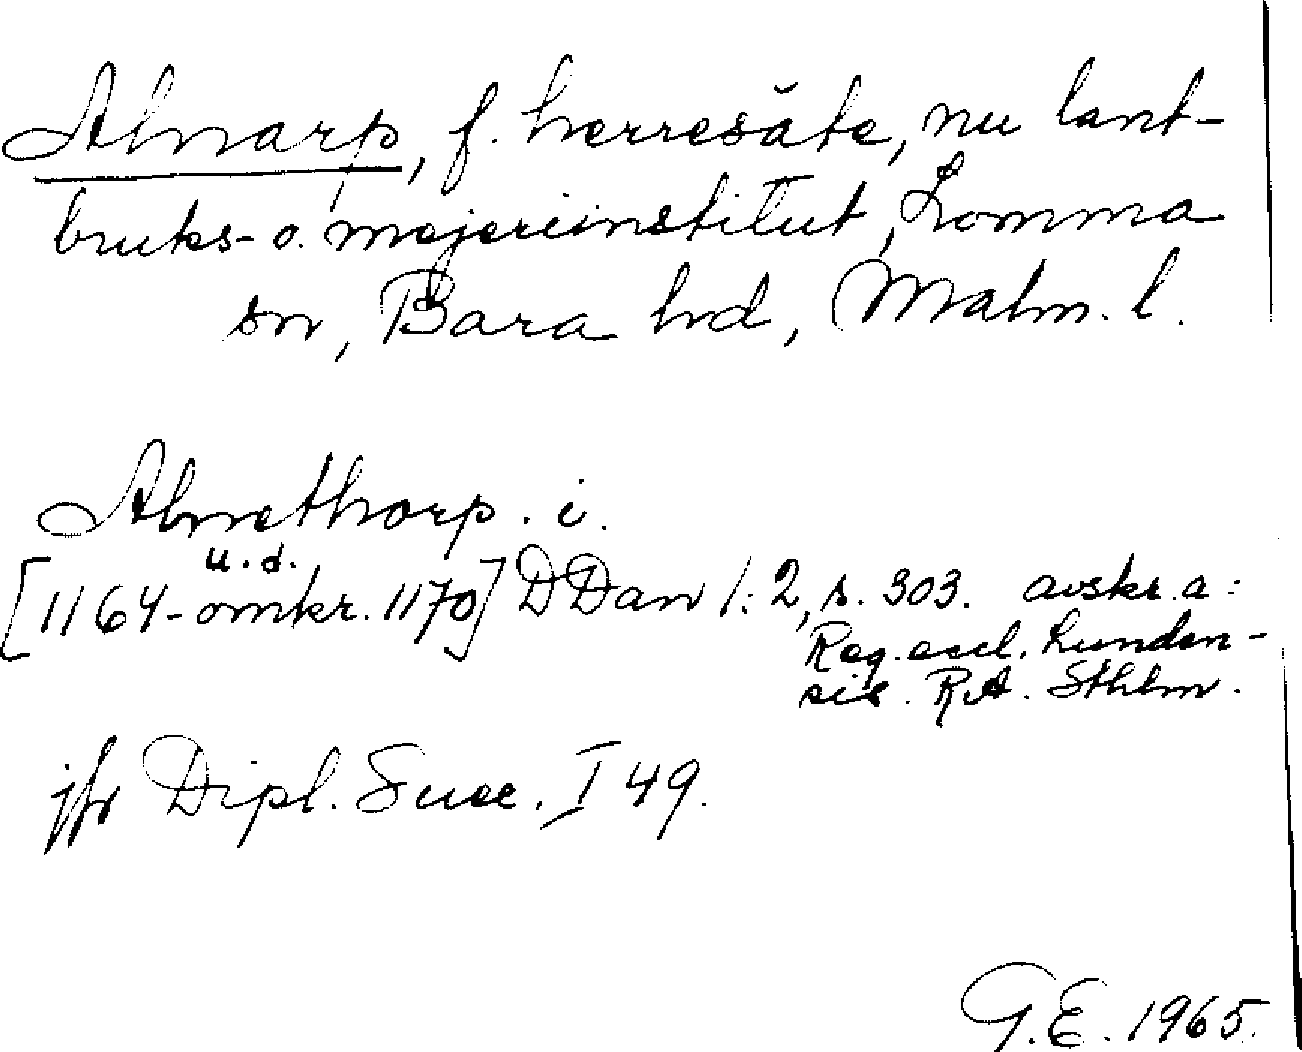 Alnarp, f. herresäte, nu lant-
bruks- o. mejeriinstitut, Lomma
sn, Bara hd, Malm. l.
Alnethorp. i.
u. d.
[1164-omkr. 1170] DDan 1:2, s. 303. avskr. a:
Reg. eccl. Lunden-
sis. RA. Sthlm.
jfr Dipl. Suec. I 49.
G.E. 1965.